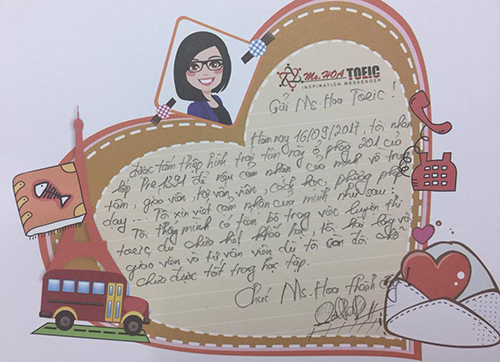 Ms.HOA TOEIC
INSPIRATION MESSENGER
Gửi Ms. Hoa Toeic!
Hôm nay 16/09/2017, tôi nhận
được tấm thiệp hình trái tim này ở phòng 201 của
lớp Pre 1331 để nêu cảm nhận của mình về trung
tâm, giáo viên, tư vấn viên, cách học, phương pháp
dạy... Tôi xin viết cảm nhận của mình như sau:
Tôi thấy mình có tiến bộ trong việc luyện thi
toeic dù chưa hết khoá học, tôi hài lòng về
giáo viên và tư vấn viên dù tôi còn đôi chỗ
chưa được tốt trong học tập.
Chúc Ms. Hoa thành công